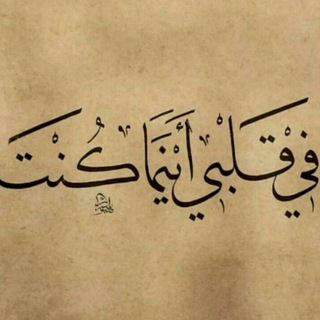 في قلبي أينما كنت